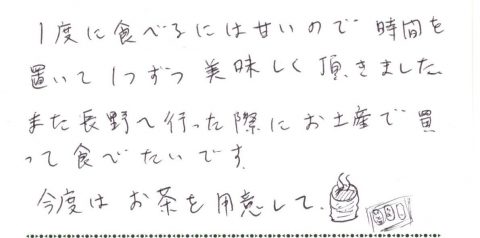 1度に食べるには甘いので時間を
置いて1つずつ美味しく頂きました
また長野へ行った際にお土産で買
って食べたいです
今度はお茶を用意して.